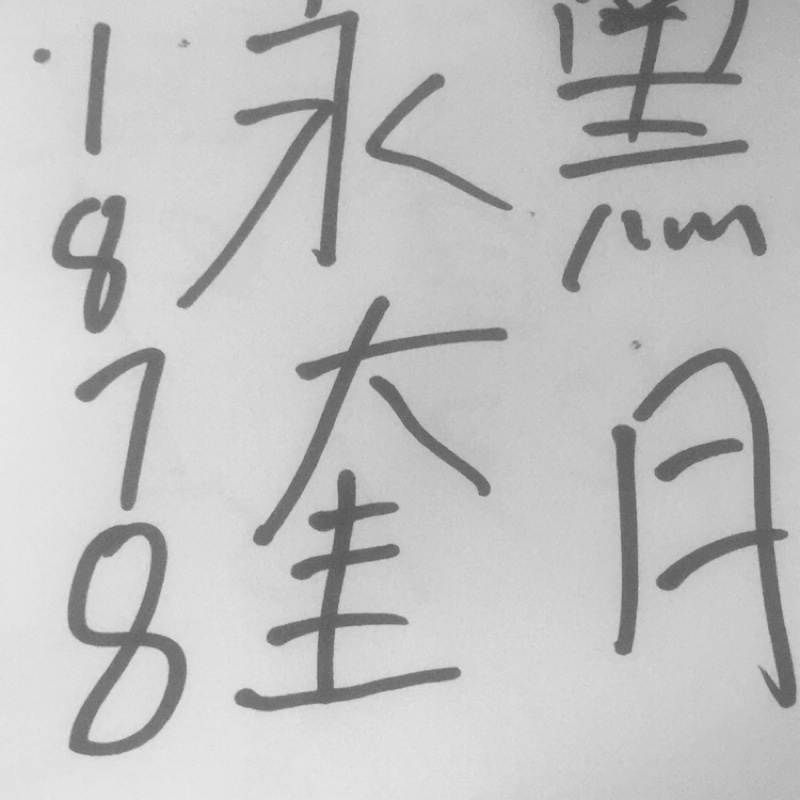 黑月
永奎
1878